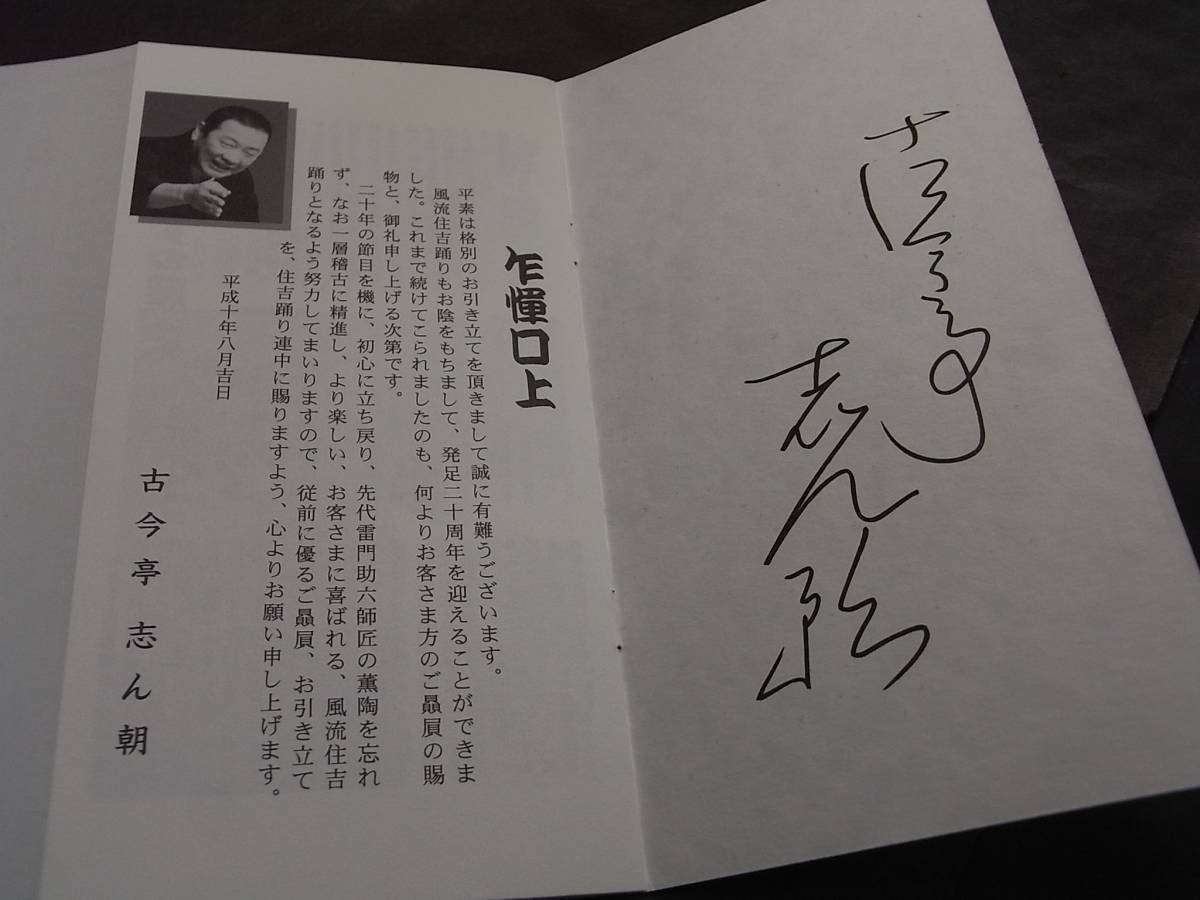 古今亭
乍憚口上
平素は格別のお引き立てを頂きまして誠に有難うございます。
風流住吉踊りもお陰をもちまして、発足二十周年を迎えることができま
した。これまで続けてこられましたのも、何よりお客さま方のご贔屓の賜
物と、御礼申し上げる次第です。
二十年の節目を機に、初心に立ち戻り、先代雷門助六師匠の薫陶を忘れ
ず、なお一層稽古に精進し、より楽しい、お客さまに喜ばれる、風流住吉
踊りとなるよう努力してまいりますので、従前に優るご贔屓、お引き立て
を、住吉踊り連中に賜りますよう、心よりお願い申し上げます。
平成十年八月吉日
古今亭 志ん朝